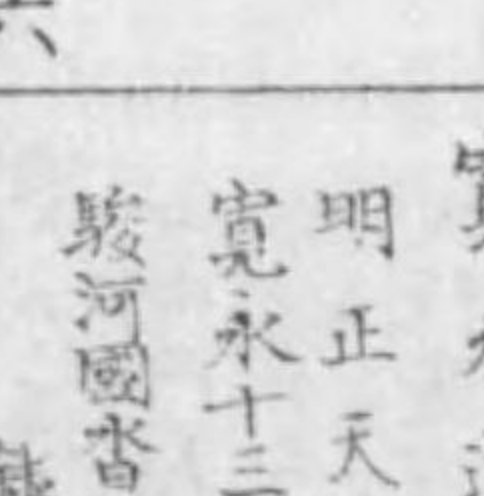 明正天
寛永十三
駿河國沓
六